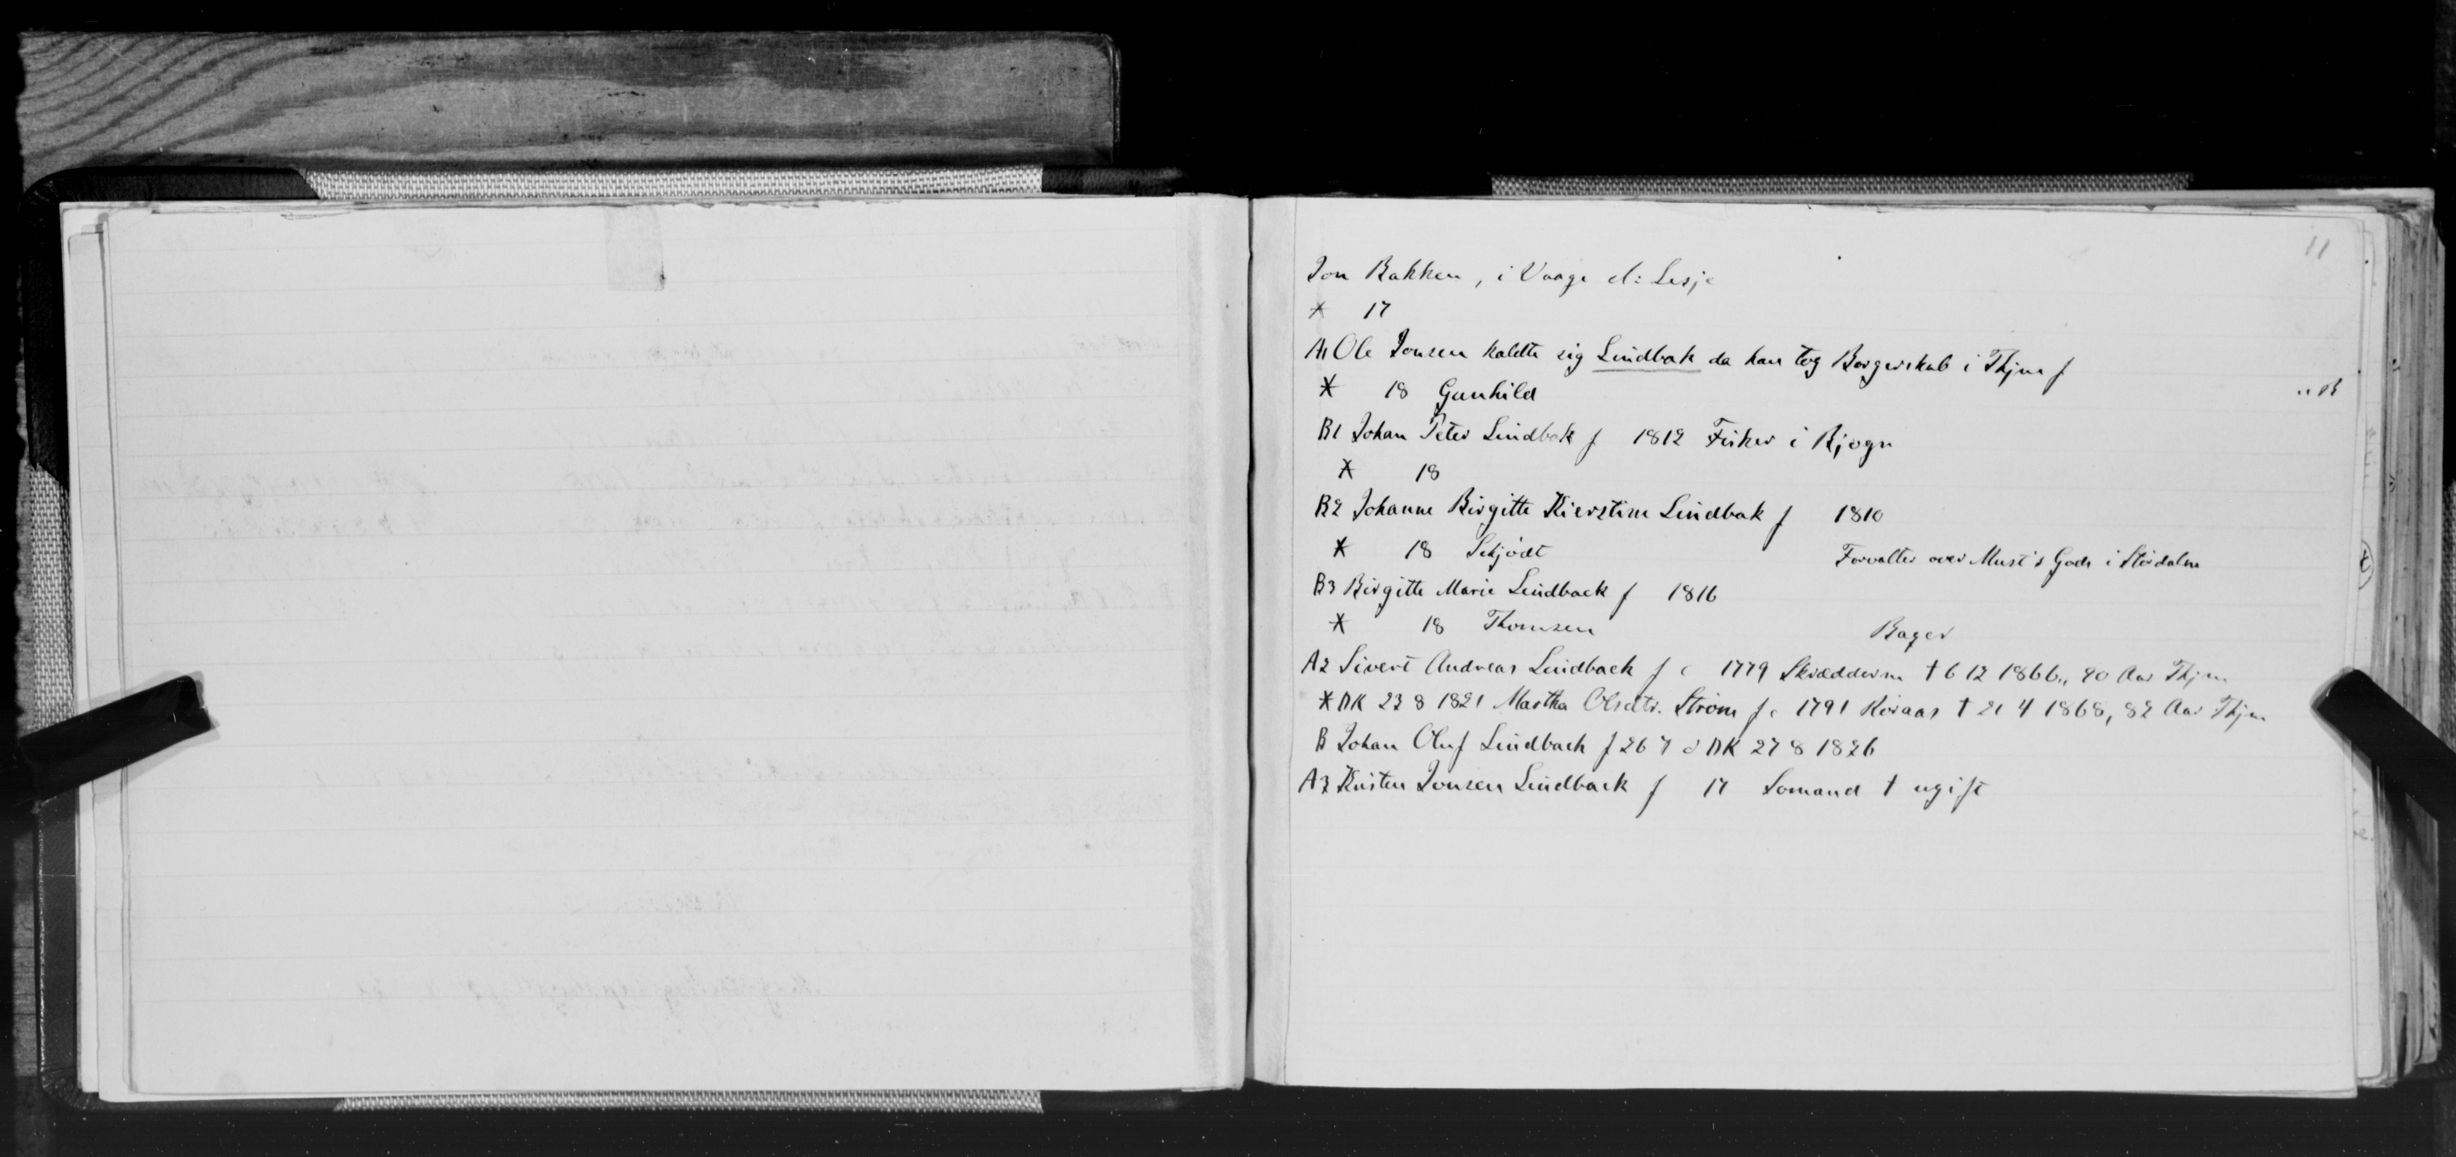 11
Jon Bakken, i Vaage el: Lesje
* 17
A1 Ole Jonsen kaldte sig Lindbak da han tog Borgerskab i Thjm f
* 18 Gunhild
B1 Johan Peter Lindbak f 1812 Fisker i Bjogn
* 18
B2 Johanne Birgitte Kierstine Lindbak f 1810
* 18 Schjödt Forvalter over Must's Gods i Stördalen
B3 Birgitte Marie Lindback f 1816
* 18 Thomsen Bager
A2 Sivert Andreas Lindback f c 1779 Skrædderm † 6 12 1866, 90 Aar Thjm
* DK 23 8 1821 Martha Olsdtr. Strøm f c 1791 Röraas † 21 4 1868, 82 Aar Thjm
B Johan Oluf Lindback f 26 7 d DK 27 8 1826
A3 Kristen Jonsen Lindback f 17 Somand † ugift